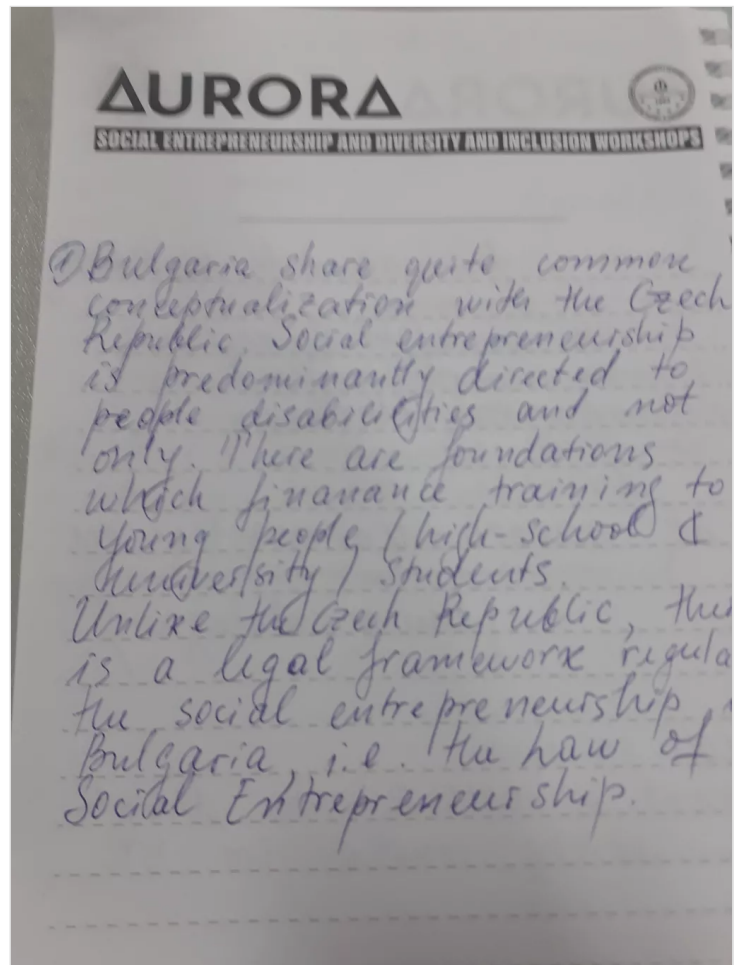 AURORA
SOCIAL ENTREPRENEURSHIP AND DIVERSITY AND INCLUSION WORKSHOPS
① Bulgaria share quite common
conceptualization with the Czech
Republic. Social entrepreneurship
is predominantly directed to
people disabilities and not
only. There are foundations
which finanance training to
young people / high-school &
university / students.
Unlike the Czech Republic, the
is a legal framework regula
the social entrepreneurship
Bulgaria, i.e. the Law of
Social Entrepreneurship.